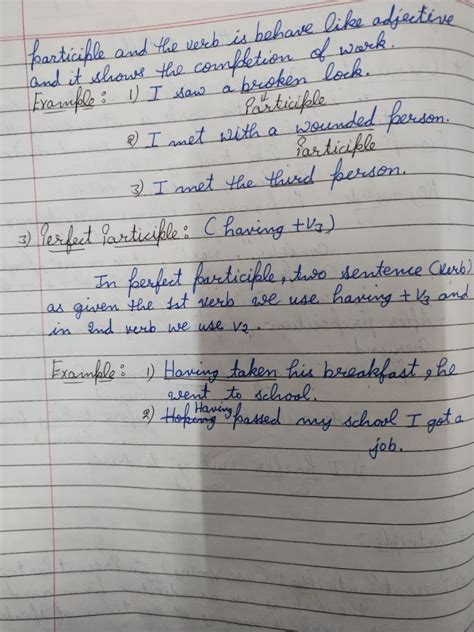 participle and the verb is behave like adjective
and it shows the completion of work.
Example: 1) I saw a broken lock.
Participle
2) I met with a wounded person.
Participle
3) I met the third person.
3) Perfect Participle: (having +V3)
In perfect participle, two sentence (verb)
as given the 1st verb we use having + V3 and
in 2nd verb we use V2.
Example: 1) Having taken his breakfast, he
went to school.
2) Hoping Having passed my school I got a
job.